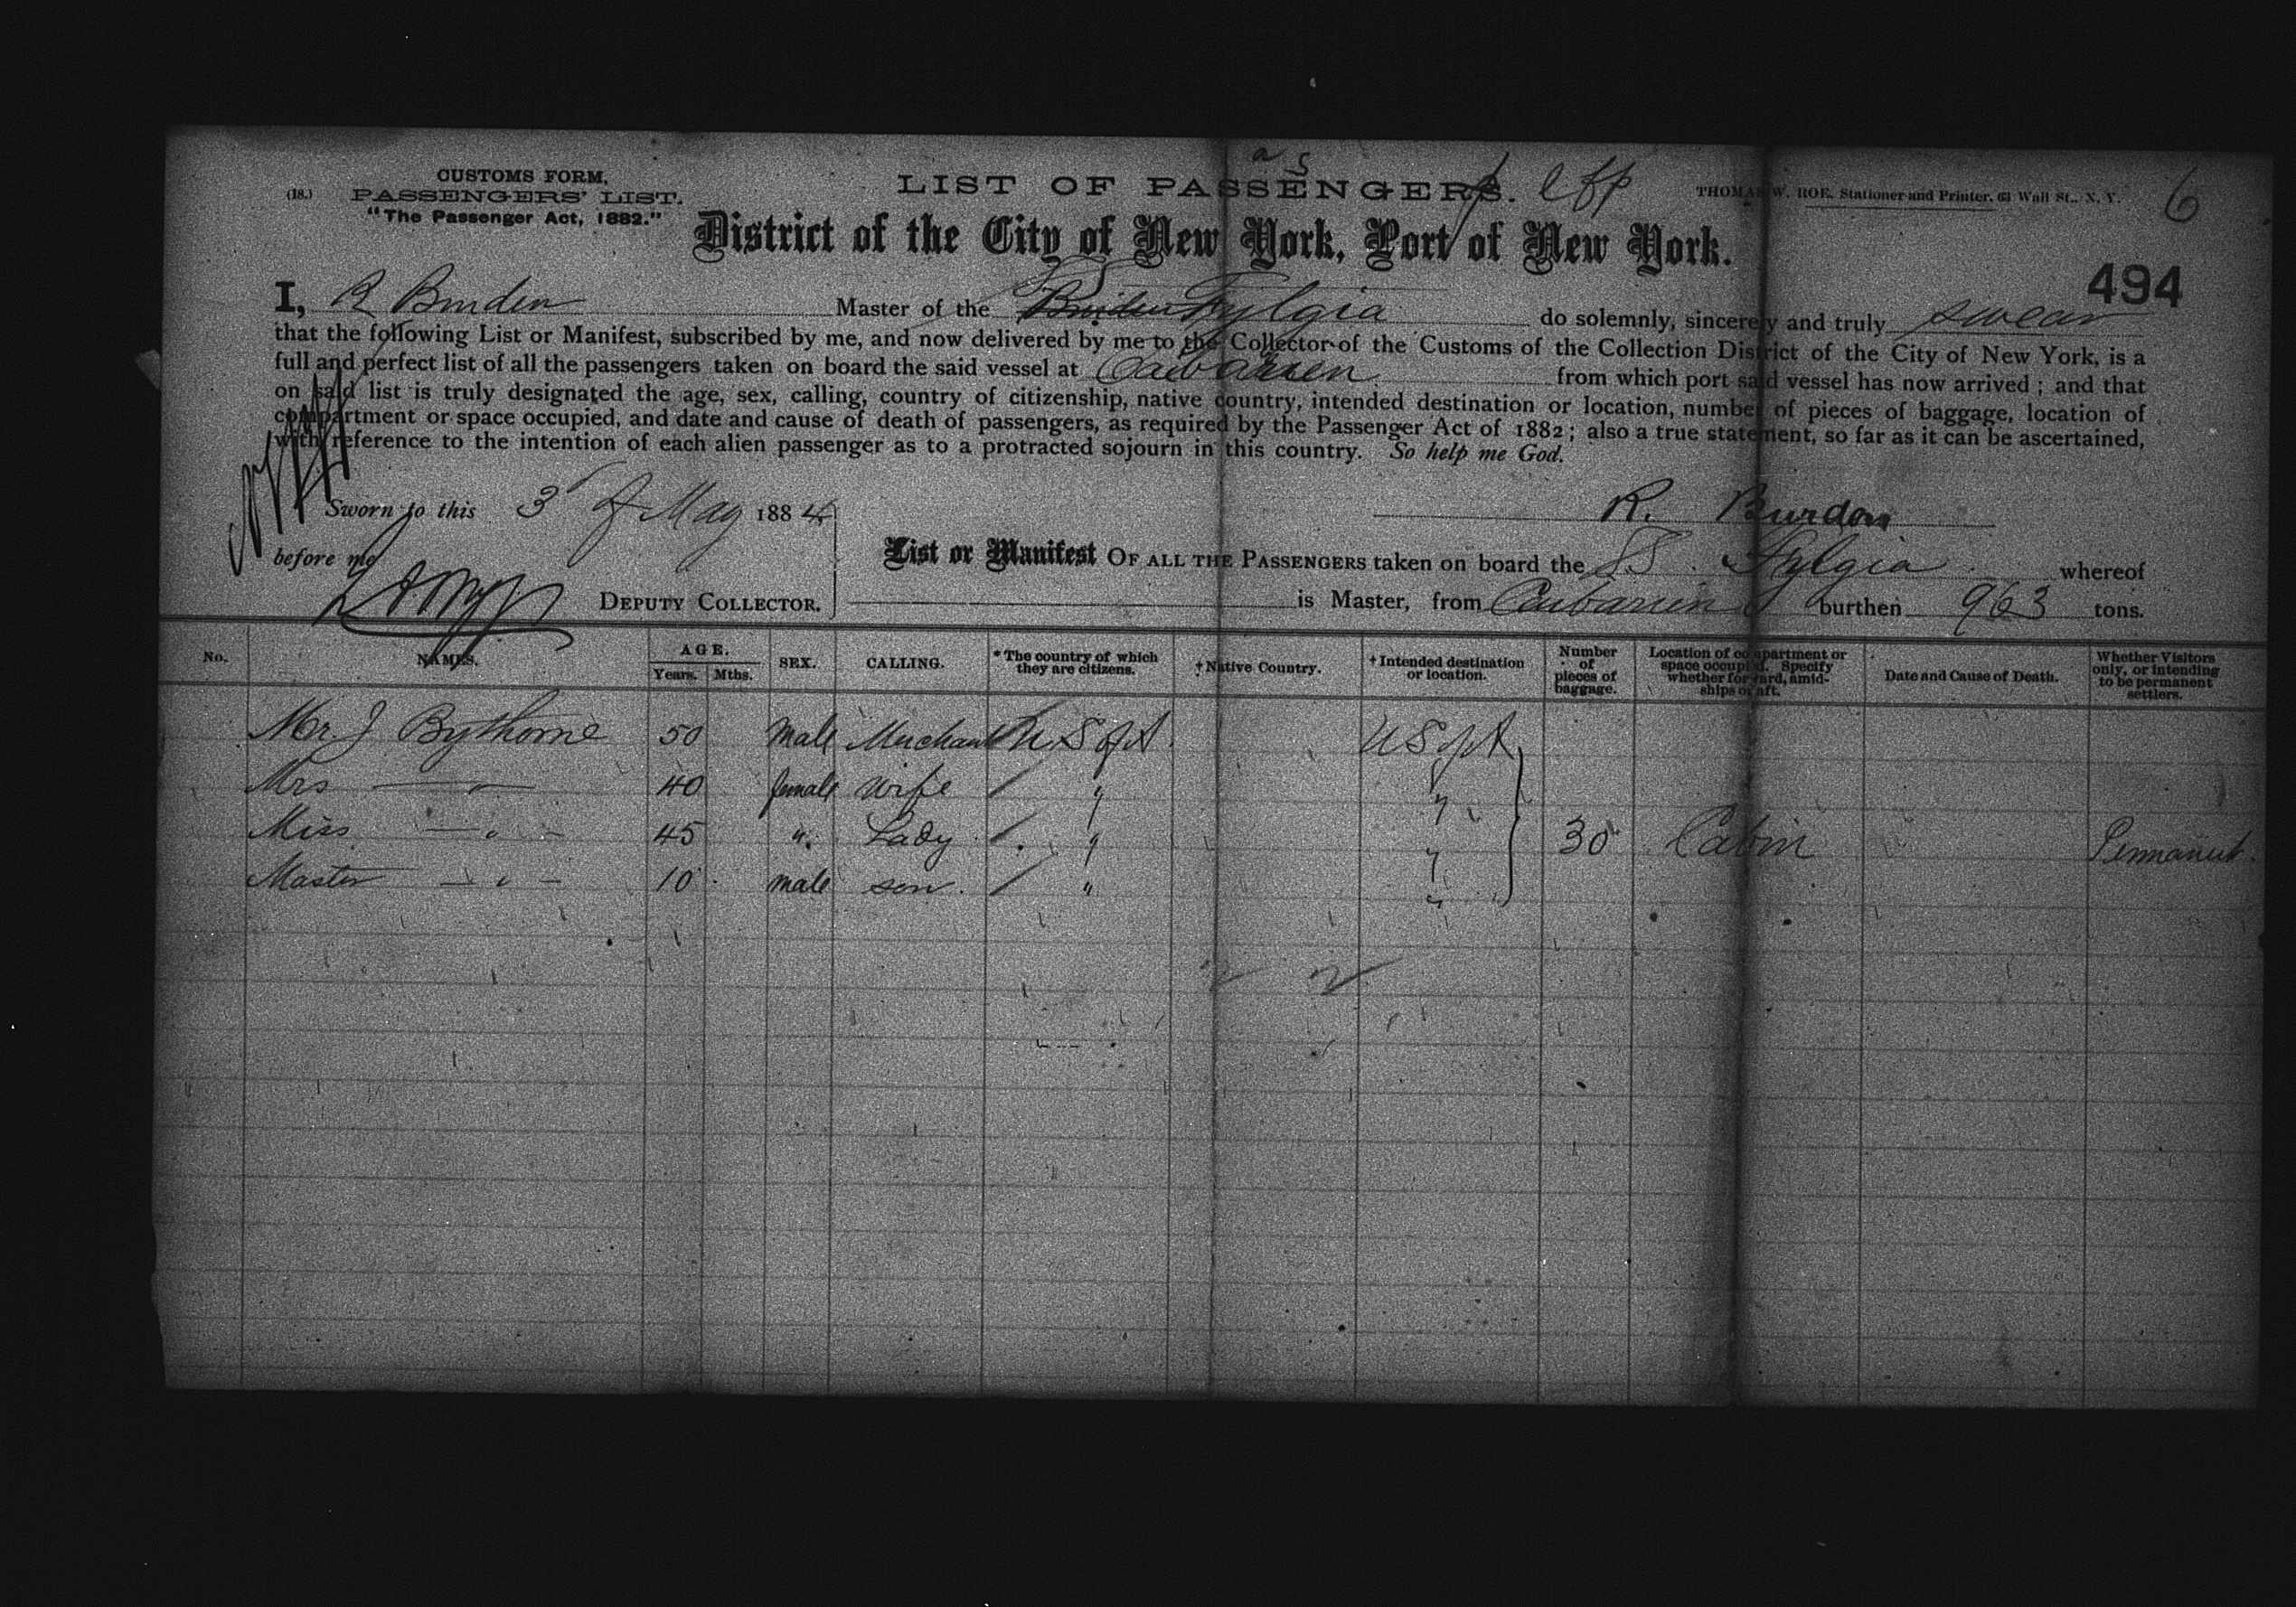 CUSTOMS FORM,
(18.) PASSENGERS' LIST.
"The Passenger Act, 1882."
LIST OF PASSENGERS.
THOMAS W. ROE, Stationer and Printer, 61 Wall St., N. Y.
6
District of the City of New York, Port of New York.
494
I, R Burden Master of the Fylgia do solemnly, sincerely and truly swear
that the following List or Manifest, subscribed by me, and now delivered by me to the Collector of the Customs of the Collection District of the City of New York, is a
full and perfect list of all the passengers taken on board the said vessel at Caibarien from which port said vessel has now arrived; and that
on said list is truly designated the age, sex, calling, country of citizenship, native country, intended destination or location, number of pieces of baggage, location of
compartment or space occupied, and date and cause of death of passengers, as required by the Passenger Act of 1882; also a true statement, so far as it can be ascertained,
with reference to the intention of each alien passenger as to a protracted sojourn in this country. So help me God.
Sworn to this 3 of May 1884
R. Burdon
before me
DEPUTY COLLECTOR.
List or Manifest OF ALL THE PASSENGERS taken on board the SS. Fylgia whereof
is Master, from Caibarien burthen 963 tons.
No. NAMES. AGE. Years. Mths. SEX. CALLING. * The country of which they are citizens. † Native Country. † Intended destination or location. Number of pieces of baggage. Location of compartment or space occupied. Specify whether forward, amidships or aft. Date and Cause of Death. Whether Visitors only, or intending to be permanent settlers.
Mr J Bythorne 50 male Merchant U S of A U S of A
Mrs — " — 40 female wife " "
Miss — " — 45 " Lady " " 30 Cabin Permanent.
Master — " — 10 male son. " "